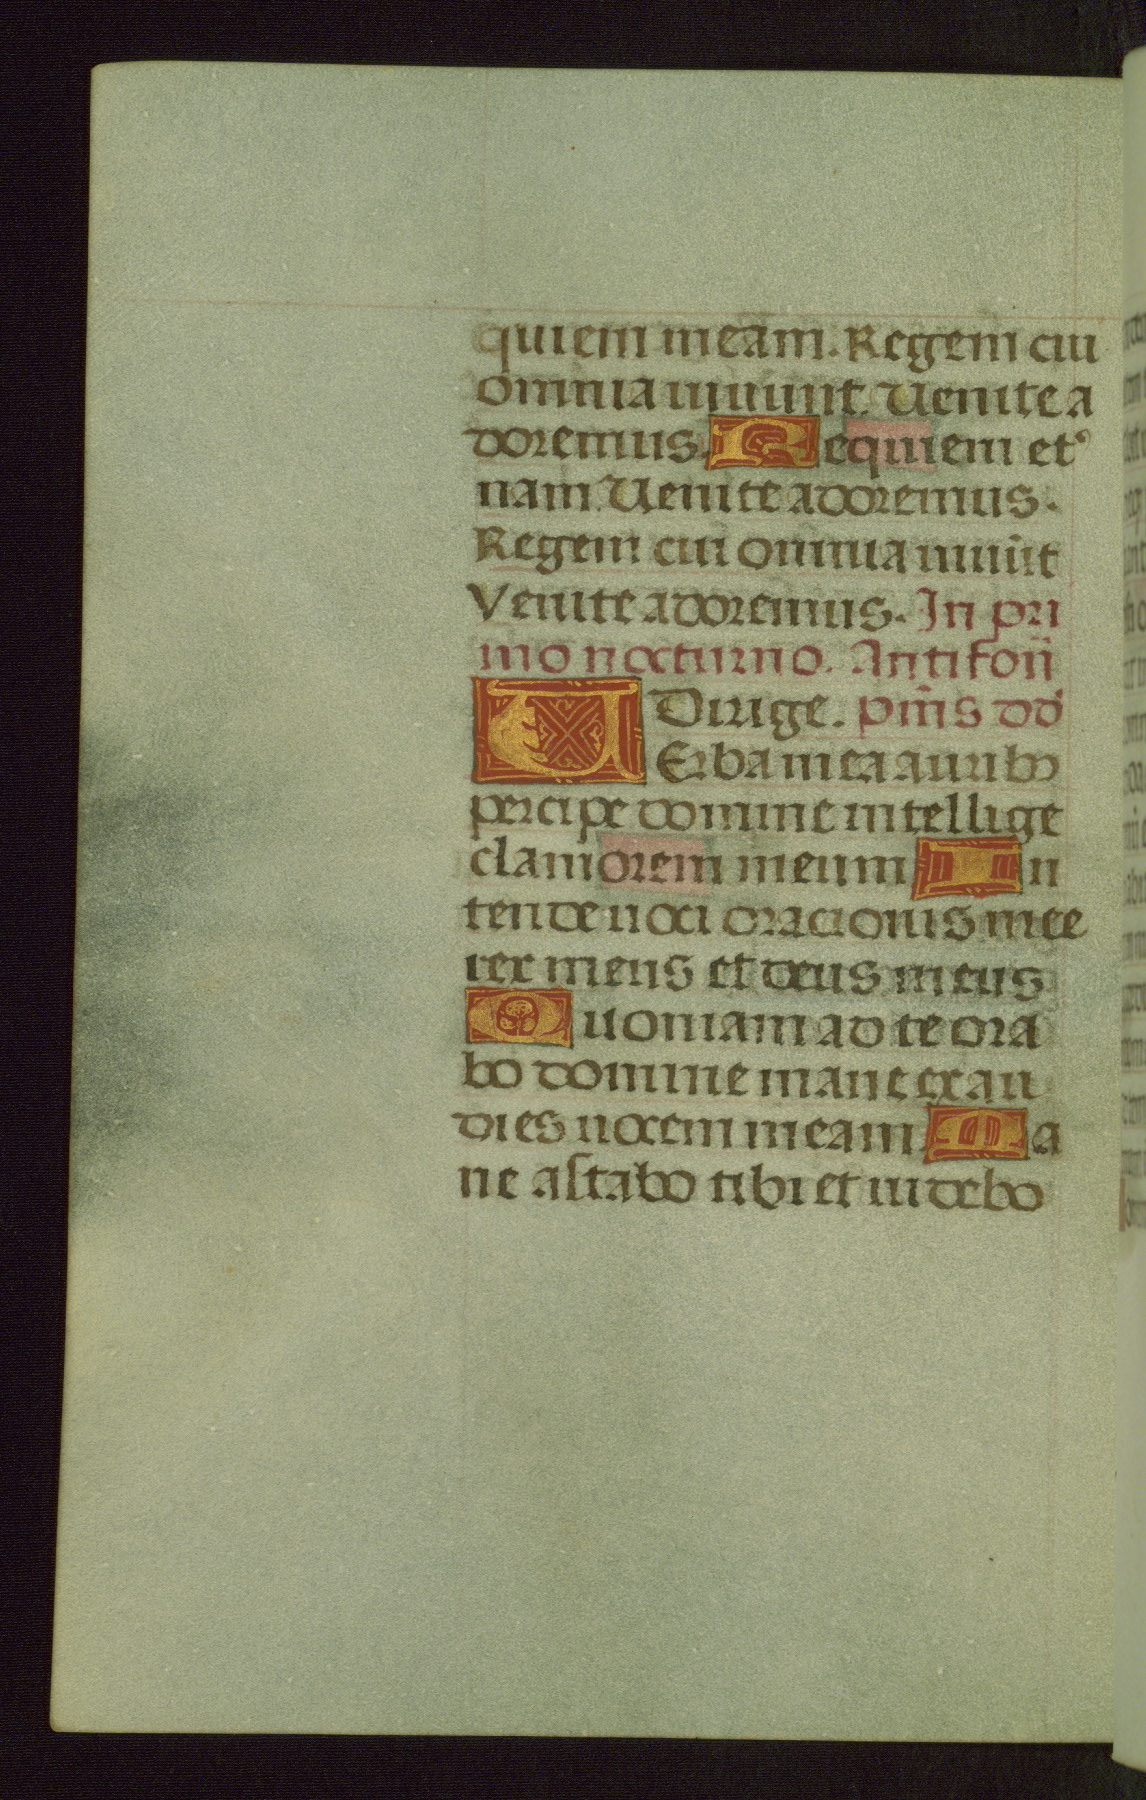 quiem meam. Regem cui
omnia uiuunt. Uenite a
doremus. Requiem et᾽
nam. Uenite adoremus.
Regem cui omnia uiuūt
Venite adoremus. In pri
mo nocturno. Antifoñ
Dirige. psm̄s dd̄
VErba mea auribꝫ
percipe domine intellige
clamorem meum In
tende uoci oracionis mee
rex meus et deus meus
Quoniam ad te ora
bo domine mane exau
dies uocem meam Ma
ne astabo tibi et uidebo